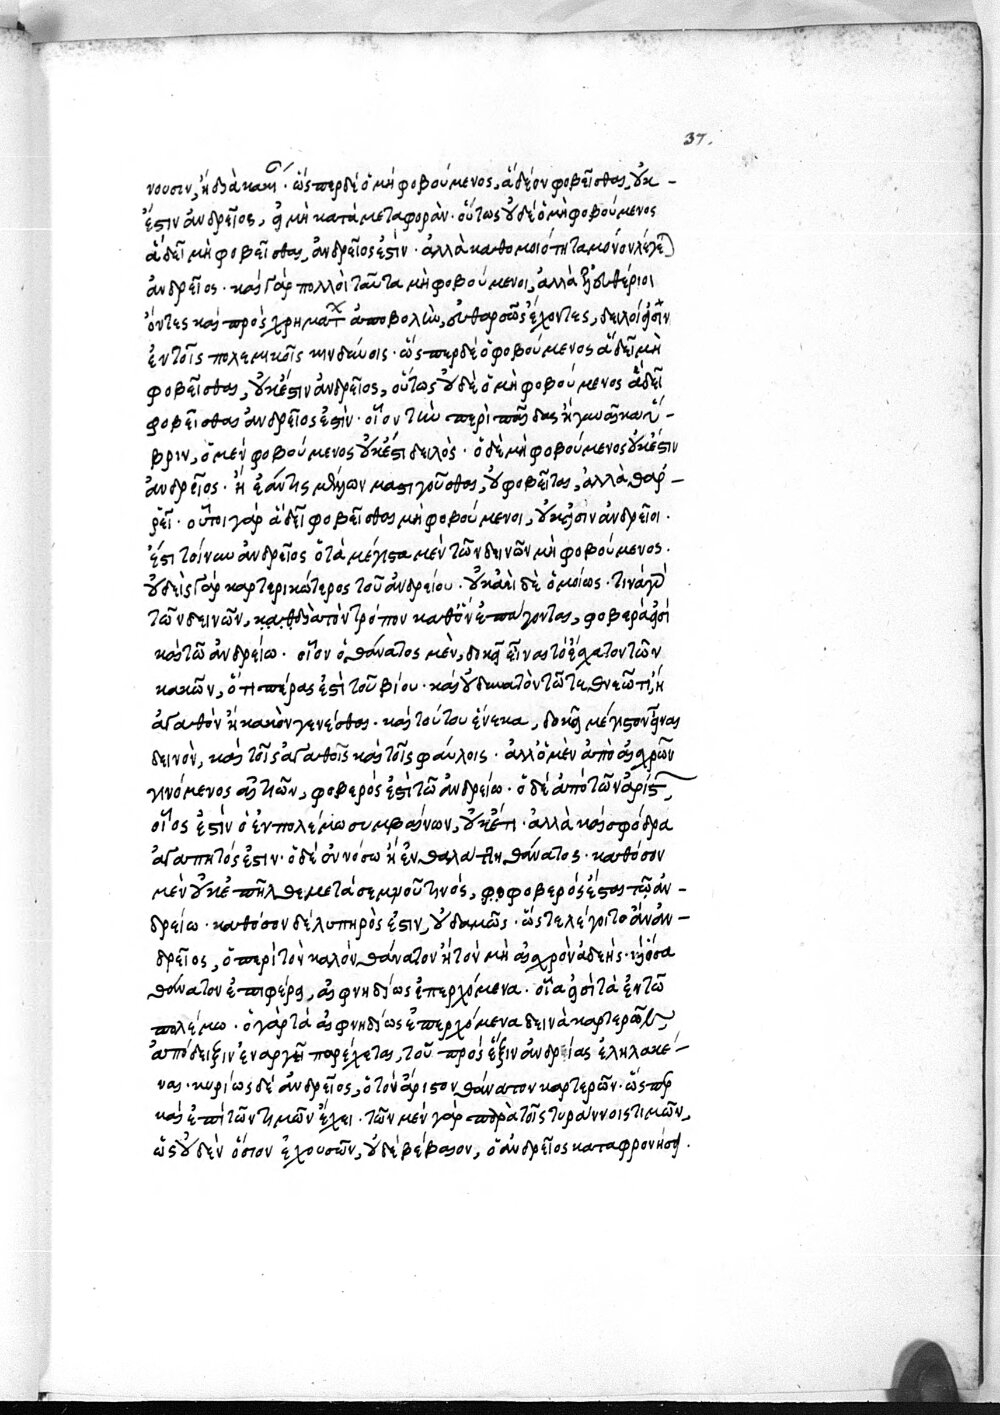 37.
νουσιν, ἢ διὰ κακῆς. ὥσπερ δὲ ὁ μὴ φοβούμενος, ἃ δέον φοβεῖσθαι, οὐκ –
ἔστιν ἀνδρεῖος, εἰ μὴ κατὰ μεταφοράν. οὕτως οὐδὲ ὁ μὴ φοβούμενος
ἃ δεῖ μὴ φοβεῖσθαι, ἀνδρεῖος ἐστίν. ἀλλὰ καθ' ὁμοιότητα μόνον λέγεται
ἀνδρεῖος. καὶ γὰρ πολλοὶ ταῦτα μὴ φοβούμενοι, ἀλλὰ ἐλευθέριοι
ὄντες καὶ πρὸς χρημάτων ἀποβολὴν, εὐθαρσῶς ἔχοντες, δειλοί εἰσιν
ἐν τοῖς πολεμικοῖς κινδύνοις. ὥσπερ δὲ ὁ φοβούμενος ἃ δεῖ μὴ
φοβεῖσθαι, οὐκ ἔστιν ἀνδρεῖος, οὕτως οὐδὲ ὁ μὴ φοβούμενος ἃ δεῖ
φοβεῖσθαι ἀνδρεῖος ἐστίν. οἷον τὴν περὶ παῖδας ἢ γυναῖκα ὕ –
βριν, ὁ μὲν φοβούμενος οὐκ ἔστι δειλός. ὁ δὲ μὴ φοβούμενος οὐκ ἔστιν
ἀνδρεῖος. ἢ ἐάν τις μέλλων μαστιγοῦσθαι, οὐ φοβεῖται, ἀλλὰ θαρ –
ρεῖ. οὗτοι γὰρ ἃ δεῖ φοβεῖσθαι μὴ φοβούμενοι, οὐκ εἰσὶν ἀνδρεῖοι.
ἔστι τοίνυν ἀνδρεῖος ὁ τὰ μέγιστα μὲν τῶν δεινῶν μὴ φοβούμενος.
οὐδεὶς γὰρ καρτερικώτερος τοῦ ἀνδρείου. οὐκ ἀεὶ δὲ ὁμοίως. τινὰ γὰρ
τῶν δεινῶν, κατὰ διὰ τὸν τρόπον καθ' ὃν ἐπάγονται, φοβερά εἰσι
καὶ τῷ ἀνδρείῳ. οἷον ὁ θάνατος μὲν, δοκεῖ εἶναι τὸ ἔσχατον τῶν
κακῶν, ὅτι πέρας ἐστὶ τοῦ βίου. καὶ οὐ δυνατὸν τῷ τεθνεῶτι, ἢ
ἀγαθὸν ἢ κακὸν γενέσθαι. καὶ τούτου ἕνεκα, δοκεῖ μέγιστον εἶναι
δεινὸν, καὶ τοῖς ἀγαθοῖς καὶ τοῖς φαύλοις. ἀλλ' ὁ μὲν ἀπὸ αἰσχρῶν
γινόμενος αἰτιῶν, φοβερός ἐστι τῷ ἀνδρείῳ. ὁ δὲ ἀπὸ τῶν ἀρίστων,
οἷος ἐστὶν ὁ ἐν πολέμῳ συμβαίνων, οὐκέτι. ἀλλὰ καὶ σφόδρα
ἀγαπητός ἐστιν. ὁ δὲ ἐν νόσῳ ἢ ἐν θαλάττῃ θάνατος. καθόσον
μὲν οὐκ ἐπῆλθε μετὰ σεμνοῦ τινός, φοβερός ἐστι τῷ ἀν –
δρείῳ. καθόσον δὲ λυπηρός ἐστιν, οὐδαμῶς. ὥστε λέγοιτο ἂν ἀν –
δρεῖος, ὁ περὶ τὸν καλὸν θάνατον ἢ τὸν μὴ αἰσχρὸν ἀδεής. καὶ ὅσα
θάνατον ἐπιφέρει, αἰφνηδίως ἐπερχόμενα. οἷα εἰσὶ τὰ ἐν τῷ
πολέμῳ. ὁ γὰρ τὰ αἰφνηδίως ἐπερχόμενα δεινὰ καρτερῶν,
ἀπόδειξιν ἐναργῆ παρέχεται, τοῦ πρὸς ἕξιν ἀνδρείας ἐληλακέ –
ναι. κυρίως δὲ ἀνδρεῖος, ὁ τὸν ἄριστον θάνατον καρτερῶν. ὥσπερ
καὶ ἐπὶ τῶν τιμῶν ἔχει. τῶν μὲν γὰρ παρὰ τοῖς τυράννοις τιμῶν,
ὡς οὐδὲν ὅσιον ἐχουσῶν, οὐδὲ βέβαιον, ὁ ἀνδρεῖος καταφρονήσει.